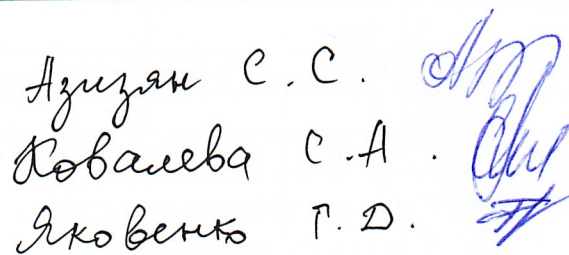 Азизян С.С.
Ковалева С.А.
Яковенко Г.Д.